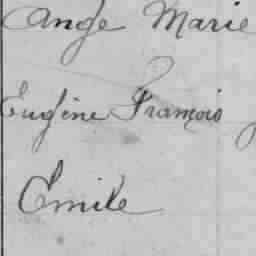 Ange Marie
Eugène François
Emile